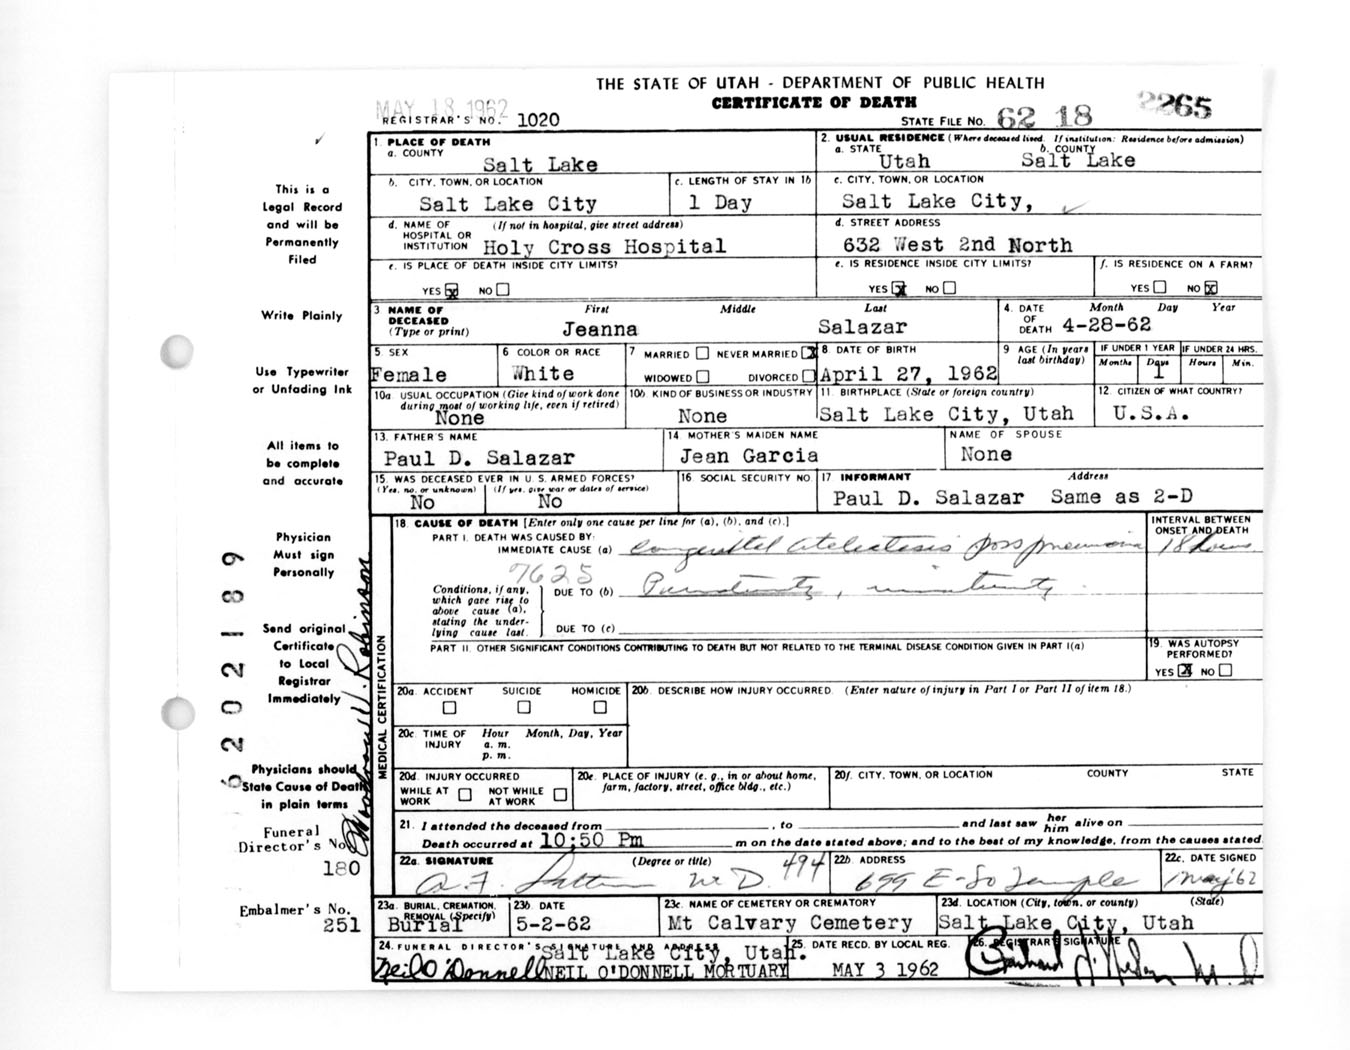 THE STATE OF UTAH - DEPARTMENT OF PUBLIC HEALTH
CERTIFICATE OF DEATH
MAY 18 1962
REGISTRAR'S NO. 1020
STATE FILE NO. 62 18 2265
This is a
Legal Record
and will be
Permanently
Filed
Write Plainly
Use Typewriter
or Unfading Ink
All items to
be complete
and accurate
Physician
Must sign
Personally
Send original
Certificate
to Local
Registrar
Immediately
Physicians should
State Cause of Death
in plain terms
Funeral
Director's No.
180
Embalmer's No.
251
6202189
Woodrow W. Robinson
1. PLACE OF DEATH
a. COUNTY
Salt Lake
2. USUAL RESIDENCE (Where deceased lived. If institution: Residence before admission)
a. STATE b. COUNTY
Utah Salt Lake
b. CITY, TOWN, OR LOCATION
Salt Lake City
c. LENGTH OF STAY IN 1b
1 Day
c. CITY, TOWN, OR LOCATION
Salt Lake City,
d. NAME OF HOSPITAL OR INSTITUTION (If not in hospital, give street address)
Holy Cross Hospital
d. STREET ADDRESS
632 West 2nd North
e. IS PLACE OF DEATH INSIDE CITY LIMITS?
YES X NO
e. IS RESIDENCE INSIDE CITY LIMITS?
YES X NO
f. IS RESIDENCE ON A FARM?
YES NO X
3 NAME OF DECEASED (Type or print)
First Middle Last
Jeanna Salazar
4. DATE OF DEATH Month Day Year
4-28-62
5 SEX
Female
6 COLOR OR RACE
White
7 MARRIED NEVER MARRIED X
WIDOWED DIVORCED
8 DATE OF BIRTH
April 27, 1962
9 AGE (In years last birthday)
IF UNDER 1 YEAR IF UNDER 24 HRS.
Months Days Hours Min.
1
10a. USUAL OCCUPATION (Give kind of work done during most of working life, even if retired)
None
10b. KIND OF BUSINESS OR INDUSTRY
None
11. BIRTHPLACE (State or foreign country)
Salt Lake City, Utah
12. CITIZEN OF WHAT COUNTRY?
U.S.A.
13. FATHER'S NAME
Paul D. Salazar
14. MOTHER'S MAIDEN NAME
Jean Garcia
NAME OF SPOUSE
None
15. WAS DECEASED EVER IN U. S. ARMED FORCES?
(Yes, no, or unknown) (If yes, give war or dates of service)
No No
16. SOCIAL SECURITY NO.
17 INFORMANT Address
Paul D. Salazar Same as 2-D
MEDICAL CERTIFICATION
18. CAUSE OF DEATH [Enter only one cause per line for (a), (b), and (c).]
INTERVAL BETWEEN ONSET AND DEATH
PART I. DEATH WAS CAUSED BY:
IMMEDIATE CAUSE (a) congenital atelectasis poss pneumonia 18 hours
7625
Conditions, if any, which gave rise to above cause (a), stating the underlying cause last.
DUE TO (b) Prematurity, immaturity
DUE TO (c)
PART II. OTHER SIGNIFICANT CONDITIONS CONTRIBUTING TO DEATH BUT NOT RELATED TO THE TERMINAL DISEASE CONDITION GIVEN IN PART I(a)
19. WAS AUTOPSY PERFORMED?
YES X NO
20a. ACCIDENT SUICIDE HOMICIDE
20b. DESCRIBE HOW INJURY OCCURRED. (Enter nature of injury in Part I or Part II of item 18.)
20c. TIME OF INJURY Hour Month, Day, Year
a. m.
p. m.
20d. INJURY OCCURRED
WHILE AT WORK NOT WHILE AT WORK
20e. PLACE OF INJURY (e. g., in or about home, farm, factory, street, office bldg., etc.)
20f. CITY, TOWN, OR LOCATION COUNTY STATE
21. I attended the deceased from , to and last saw her him alive on
Death occurred at 10:50 Pm m on the date stated above; and to the best of my knowledge, from the causes stated.
22a. SIGNATURE (Degree or title)
M D. 494
22b. ADDRESS
699 E-So Temple
22c. DATE SIGNED
1 May '62
23a. BURIAL, CREMATION, REMOVAL (Specify)
Burial
23b. DATE
5-2-62
23c. NAME OF CEMETERY OR CREMATORY
Mt Calvary Cemetery
23d. LOCATION (City, town, or county) (State)
Salt Lake City, Utah
24. FUNERAL DIRECTOR'S SIGNATURE AND ADDRESS
Salt Lake City, Utah.
Neil O'Donnell NEIL O'DONNELL MORTUARY
25. DATE RECD. BY LOCAL REG.
MAY 3 1962
26. REGISTRAR'S SIGNATURE